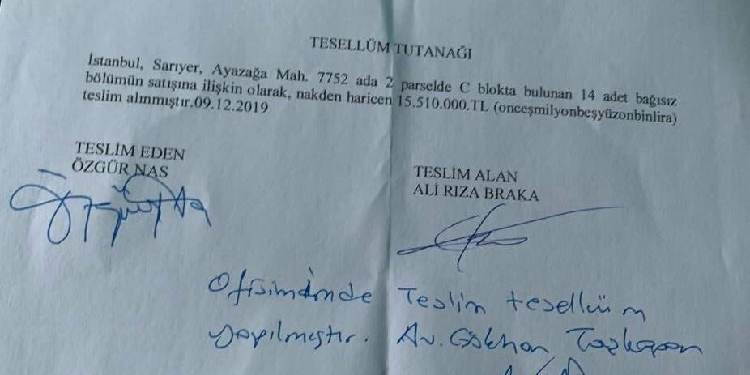 TESELLÜM TUTANAĞI
İstanbul, Sarıyer, Ayazağa Mah. 7752 ada 2 parselde C blokta bulunan 14 adet bağısız
bölümün satışına ilişkin olarak, nakden haricen 15.510.000.TL (onceşmilyonbeşyüzonbinlira)
teslim alınmıştır.09.12.2019
TESLİM EDEN
ÖZGÜR NAS
TESLİM ALAN
ALİ RIZA BRAKA
Ofisimimde Teslim tesellüm
yapılmıştır. Av. Gökhan